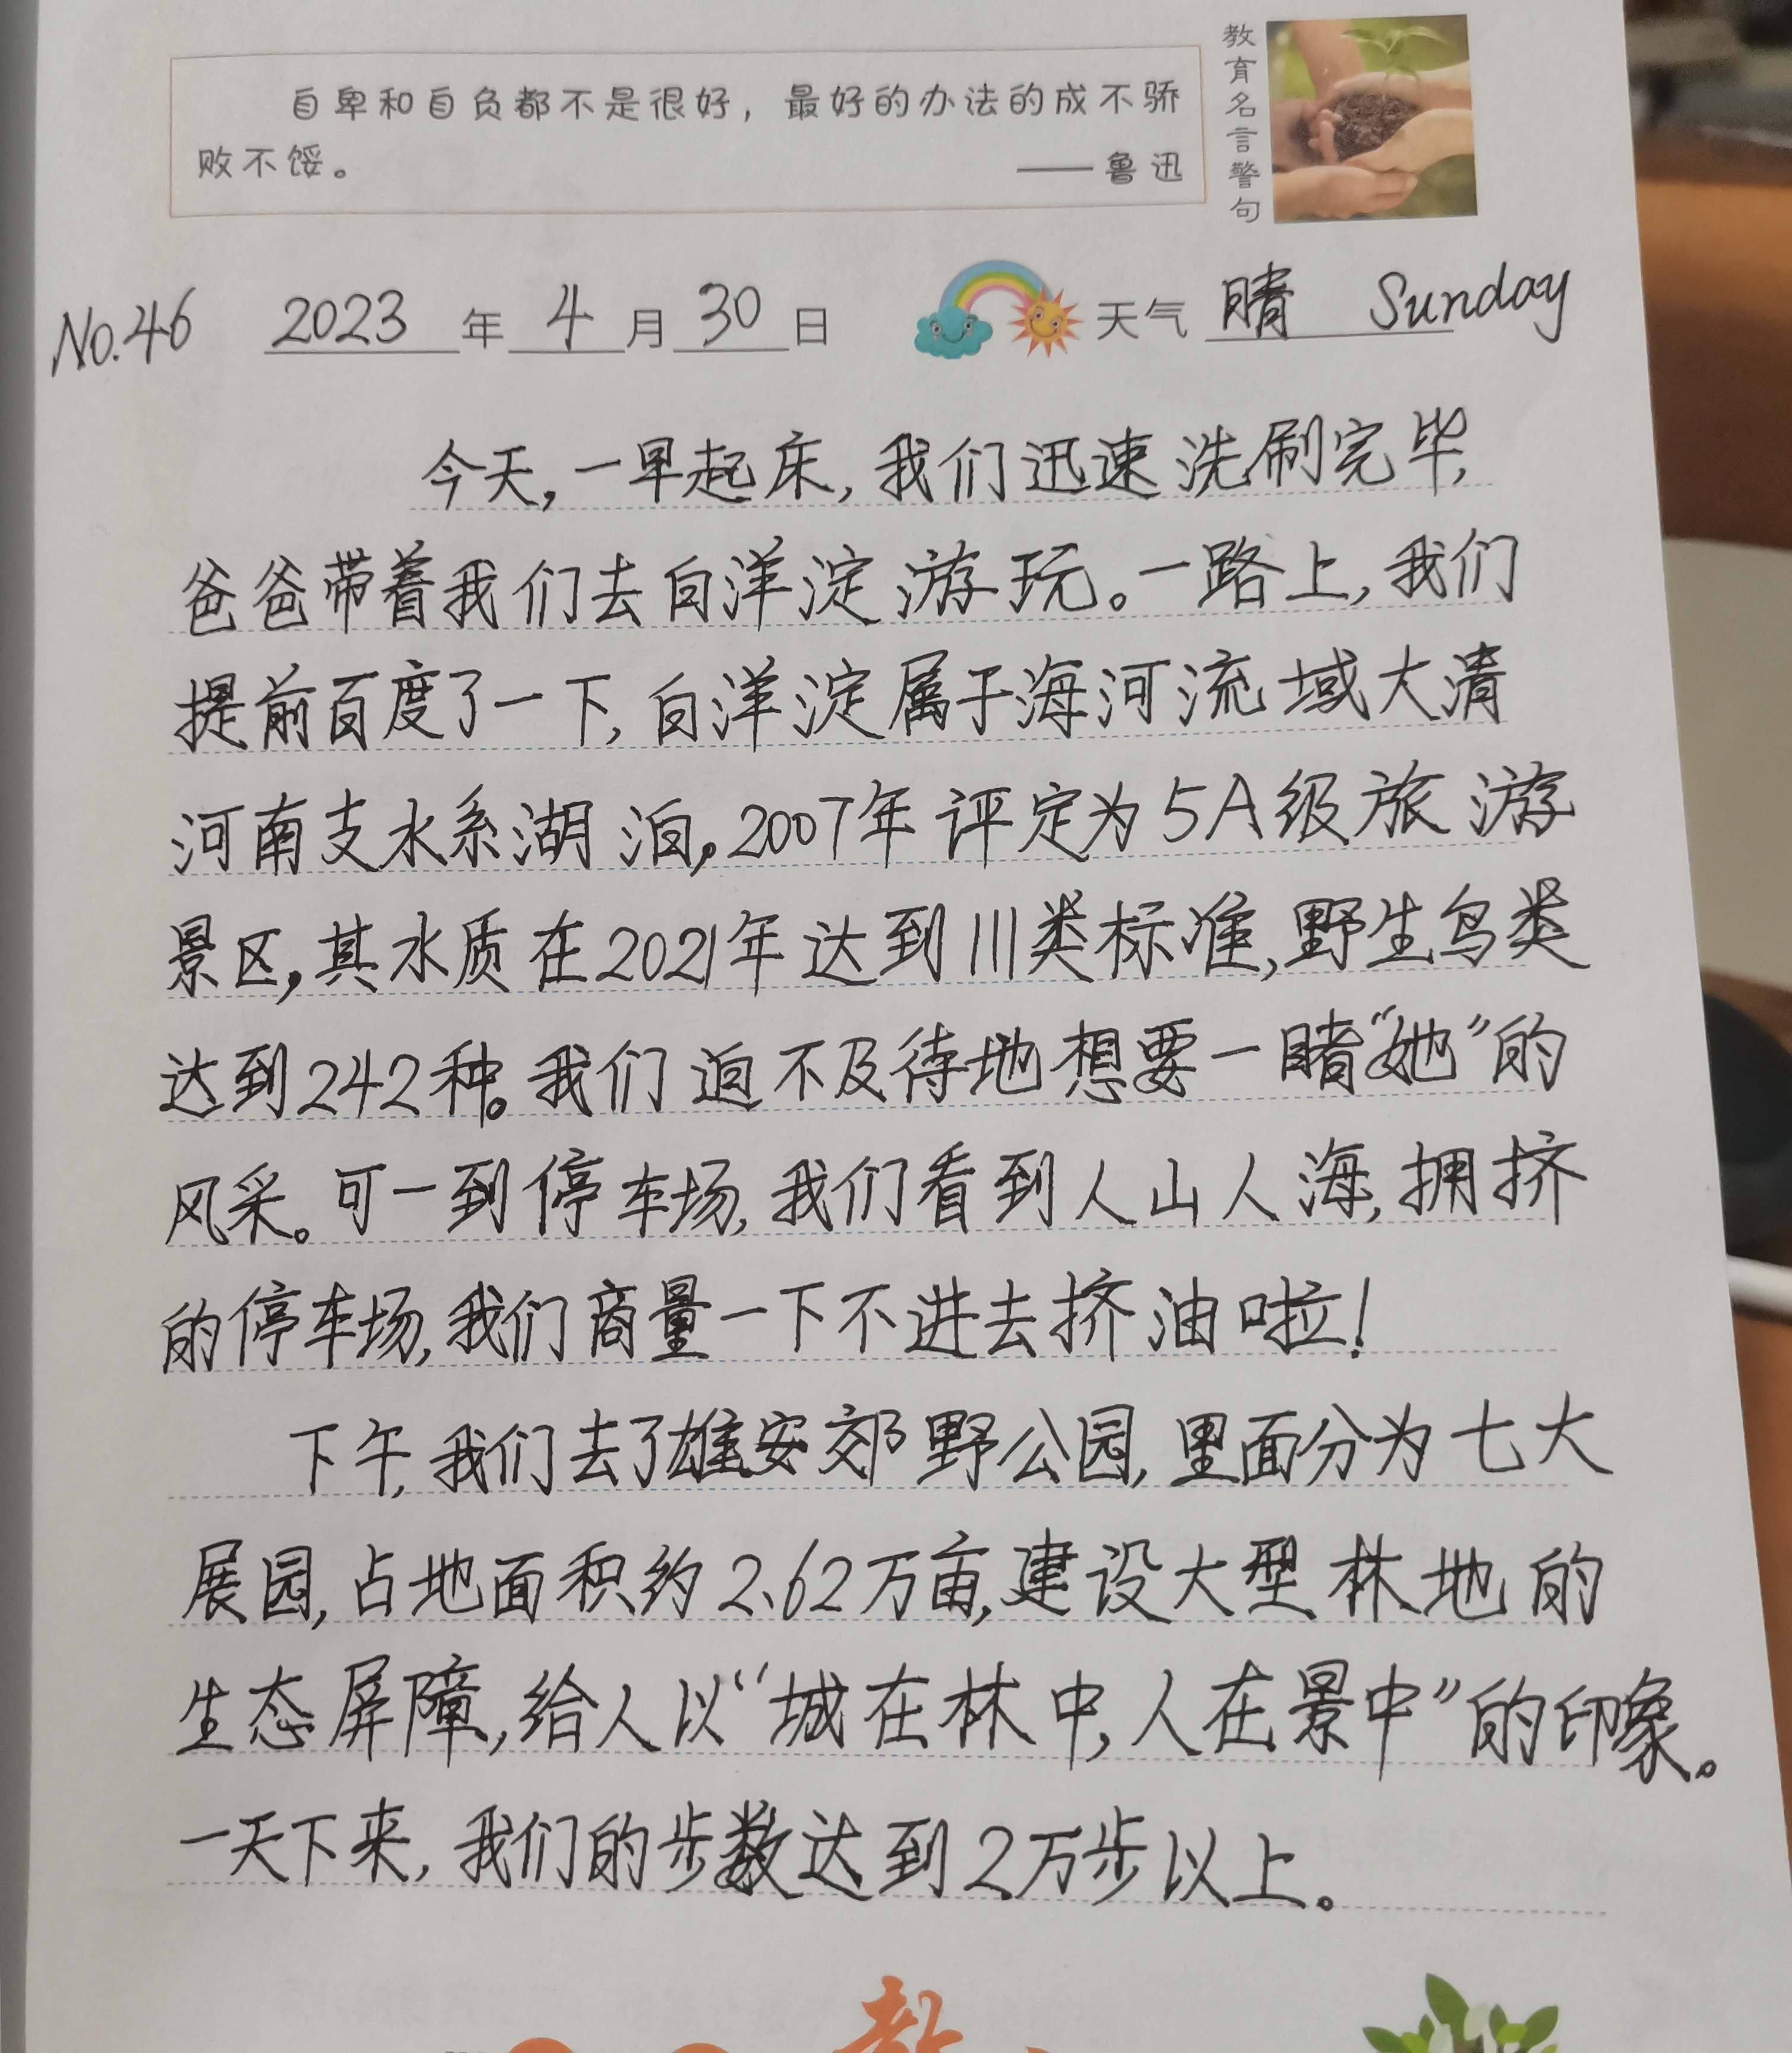 自卑和自负都不是很好，最好的办法的成不骄
败不馁。
——鲁迅
教育名言警句
No.46 2023年4月30日 天气 晴 Sunday
今天,一早起床,我们迅速洗刷完毕,
爸爸带着我们去白洋淀游玩。一路上,我们
提前百度了一下,白洋淀属于海河流域大清
河南支水系湖泊,2007年评定为5A级旅游
景区,其水质在2021年达到III类标准,野生鸟类
达到242种。我们迫不及待地想要一睹“她”的
风采。可一到停车场,我们看到人山人海,拥挤
的停车场,我们商量一下不进去挤油啦!
下午,我们去了雄安郊野公园,里面分为七大
展园,占地面积约2.62万亩,建设大型林地的
生态屏障,给人以“城在林中,人在景中”的印象。
一天下来,我们的步数达到2万步以上。